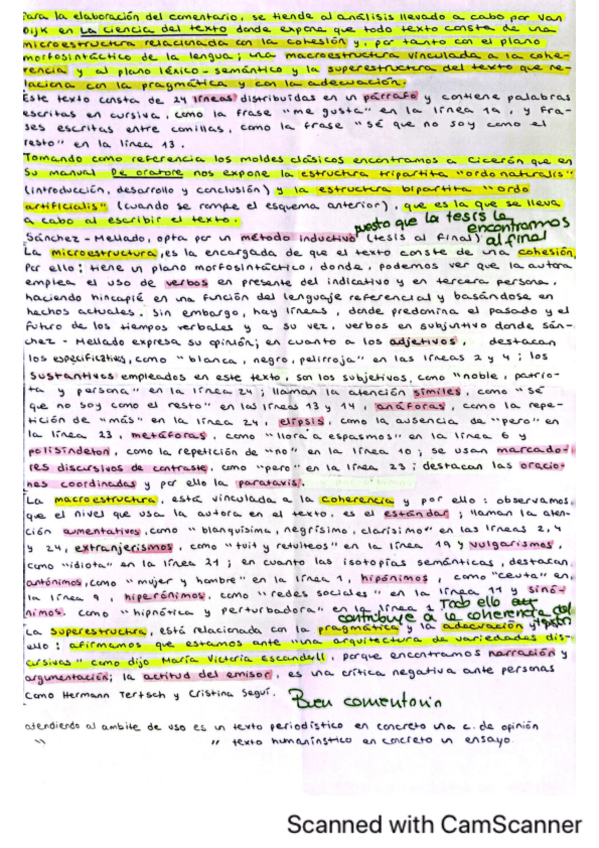 Para la elaboración del comentario, se tiende al análisis llevado a cabo por Van
Dijk en La ciencia del texto donde expone que todo texto consta de una
microestructura relacionada con la cohesión y, por tanto con el plano
morfosintáctico de la lengua; una macroestructura vinculada a la cohe-
rencia y al plano léxico-semántico y la superestructura del texto que re-
laciona con la pragmática y con la adecuación.
Este texto consta de 24 líneas distribuidas en un párrafo y contiene palabras
escritas en cursiva, como la frase "me gusta" en la línea 19, y fra-
ses escritas entre comillas, como la frase "sé que no soy como el
resto" en la línea 13.
Tomando como referencia los moldes clásicos encontramos a Cicerón que en
su manual De oratore nos expone la estructura tripartita "ordo naturalis"
(introducción, desarrollo y conclusión) y la estructura bipartita "ordo
artificialis" (cuando se rompe el esquema anterior), que es la que se lleva
a cabo al escribir el texto.
puesto que la tesis la encontramos al final
Sánchez-Mellado, opta por un método inductivo (tesis al final)
La microestructura, es la encargada de que el texto conste de una cohesión.
Por ello: tiene un plano morfosintáctico, donde, podemos ver que la autora
emplea el uso de verbos en presente del indicativo y en tercera persona,
haciendo hincapié en una función del lenguaje referencial y basándose en
hechos actuales. Sin embargo, hay líneas, donde predomina el pasado y el
futuro de los tiempos verbales y a su vez, verbos en subjuntivo donde Sán-
chez-Mellado expresa su opinión; en cuanto a los adjetivos, destacan
los especificativos, como "blanca, negro, pelirroja" en las líneas 2 y 4; los
sustantivos empleados en este texto, son los subjetivos, como "noble, patrio-
ta y persona" en la línea 24; llaman la atención símiles, como "sé
que no soy como el resto" en las líneas 13 y 14, anáforas, como la repe-
tición de "más" en la línea 24, elipsis, como la ausencia de "pero" en
la línea 23, metáforas, como "llora a espasmos" en la línea 6 y
polisíndeton, como la repetición de "no" en la línea 10; se usan marcado-
res discursivos de contraste, como "pero" en la línea 23; destacan las oracio-
nes coordinadas y por ello la parataxis.
La macroestructura, está vinculada a la coherencia y por ello: observamos,
que el nivel que usa la autora en el texto, es el estándar; llaman la aten-
ción aumentativos, como "blanquísima, negrísimo, clarísimo" en las líneas 2, 4
y 24, extranjerismos, como "tuit y retuiteos" en la línea 19 y vulgarismos,
como "idiota" en la línea 21; en cuanto las isotopías semánticas, destacan
antónimos, como "mujer y hombre" en la línea 1, hipónimos, como "Ceuta" en,
la línea 9, hiperónimos, como "redes sociales" en la línea 11 y sinó-
nimos, como "hipnótica y perturbadora" en la línea 2
Todo ello contribuye a la coherencia del
La superestructura, está relacionada con la pragmática y la adecuación y por
ello: afirmamos que estamos ante "una arquitectura de variedades dis-
cursivas" como dijo María Victoria Escandell, porque encontramos narración y
argumentación; la actitud del emisor, es una crítica negativa ante personas
como Hermann Tertsch y Cristina Seguí.
Buen comentario
atendiendo al ambite de uso es un texto periodístico en concreto una c. de opinión
" " texto humanínstico en concreto un ensayo.
Scanned with CamScanner